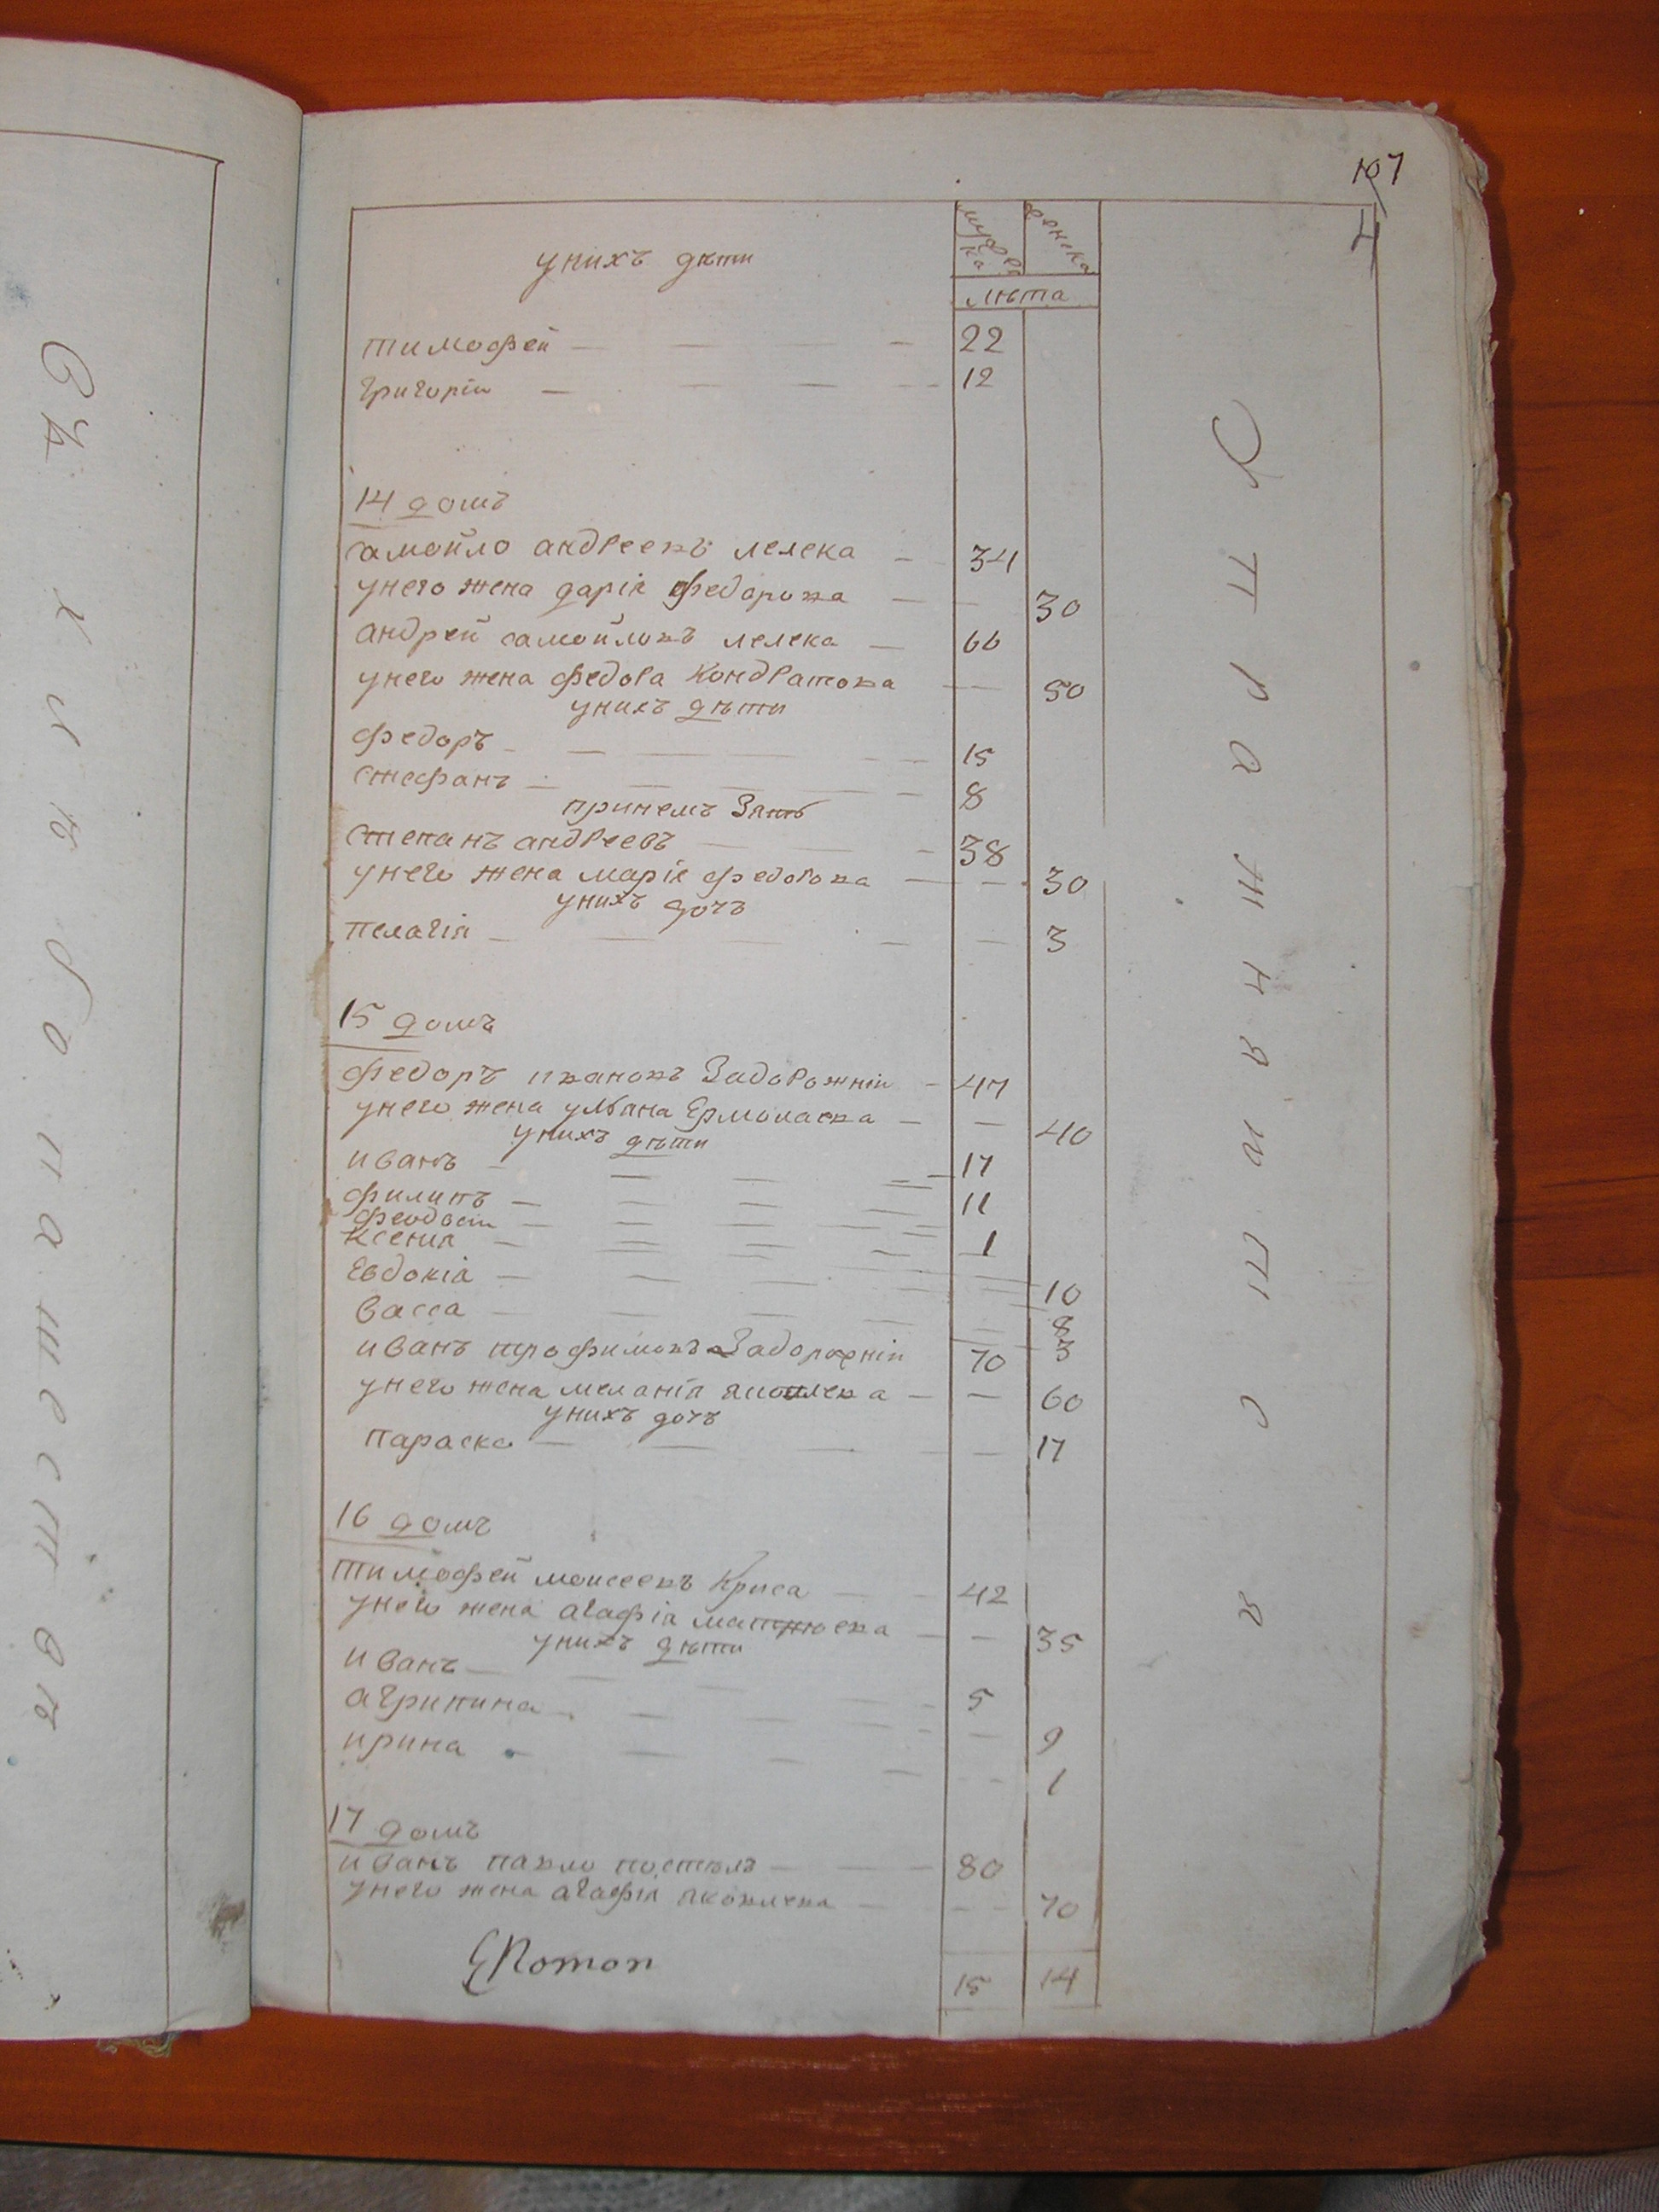 107
4
мужеска
женска
унихъ дѣти
лѣта
тимофей 22
григорій 12
14 домъ
самойло андреевъ лелека 34
унего жена дарія федорова 30
андрей самойловъ лелека 66
унего жена федора Кондратова 50
унихъ дѣти
федоръ 15
стефанъ 8
прииемъ Зять
степанъ андреевъ 38
унего жена марія федорова 30
унихъ дочь
пелагія 3
15 домъ
федоръ ивановъ Задорожній 47
унего жена уляна Ермолаева 40
унихъ дѣти
иванъ 17
филипъ 11
феодосіи 1
Ксения 10
Евдокіа 8
васса 3
иванъ трофимовъ Задорожній 70
унего жена меланія яковлева 60
унихъ дочь
параска 17
16 домъ
тимофей моисеевъ Криса 42
унего жена агафія матвѣева 35
унихъ дѣти
иванъ 5
агрипина 9
ирина 1
17 домъ
иванъ павло 80
унего жена агафія яковлева 70
15 14
Отражняютс я
Съ хлѣбопашествъ